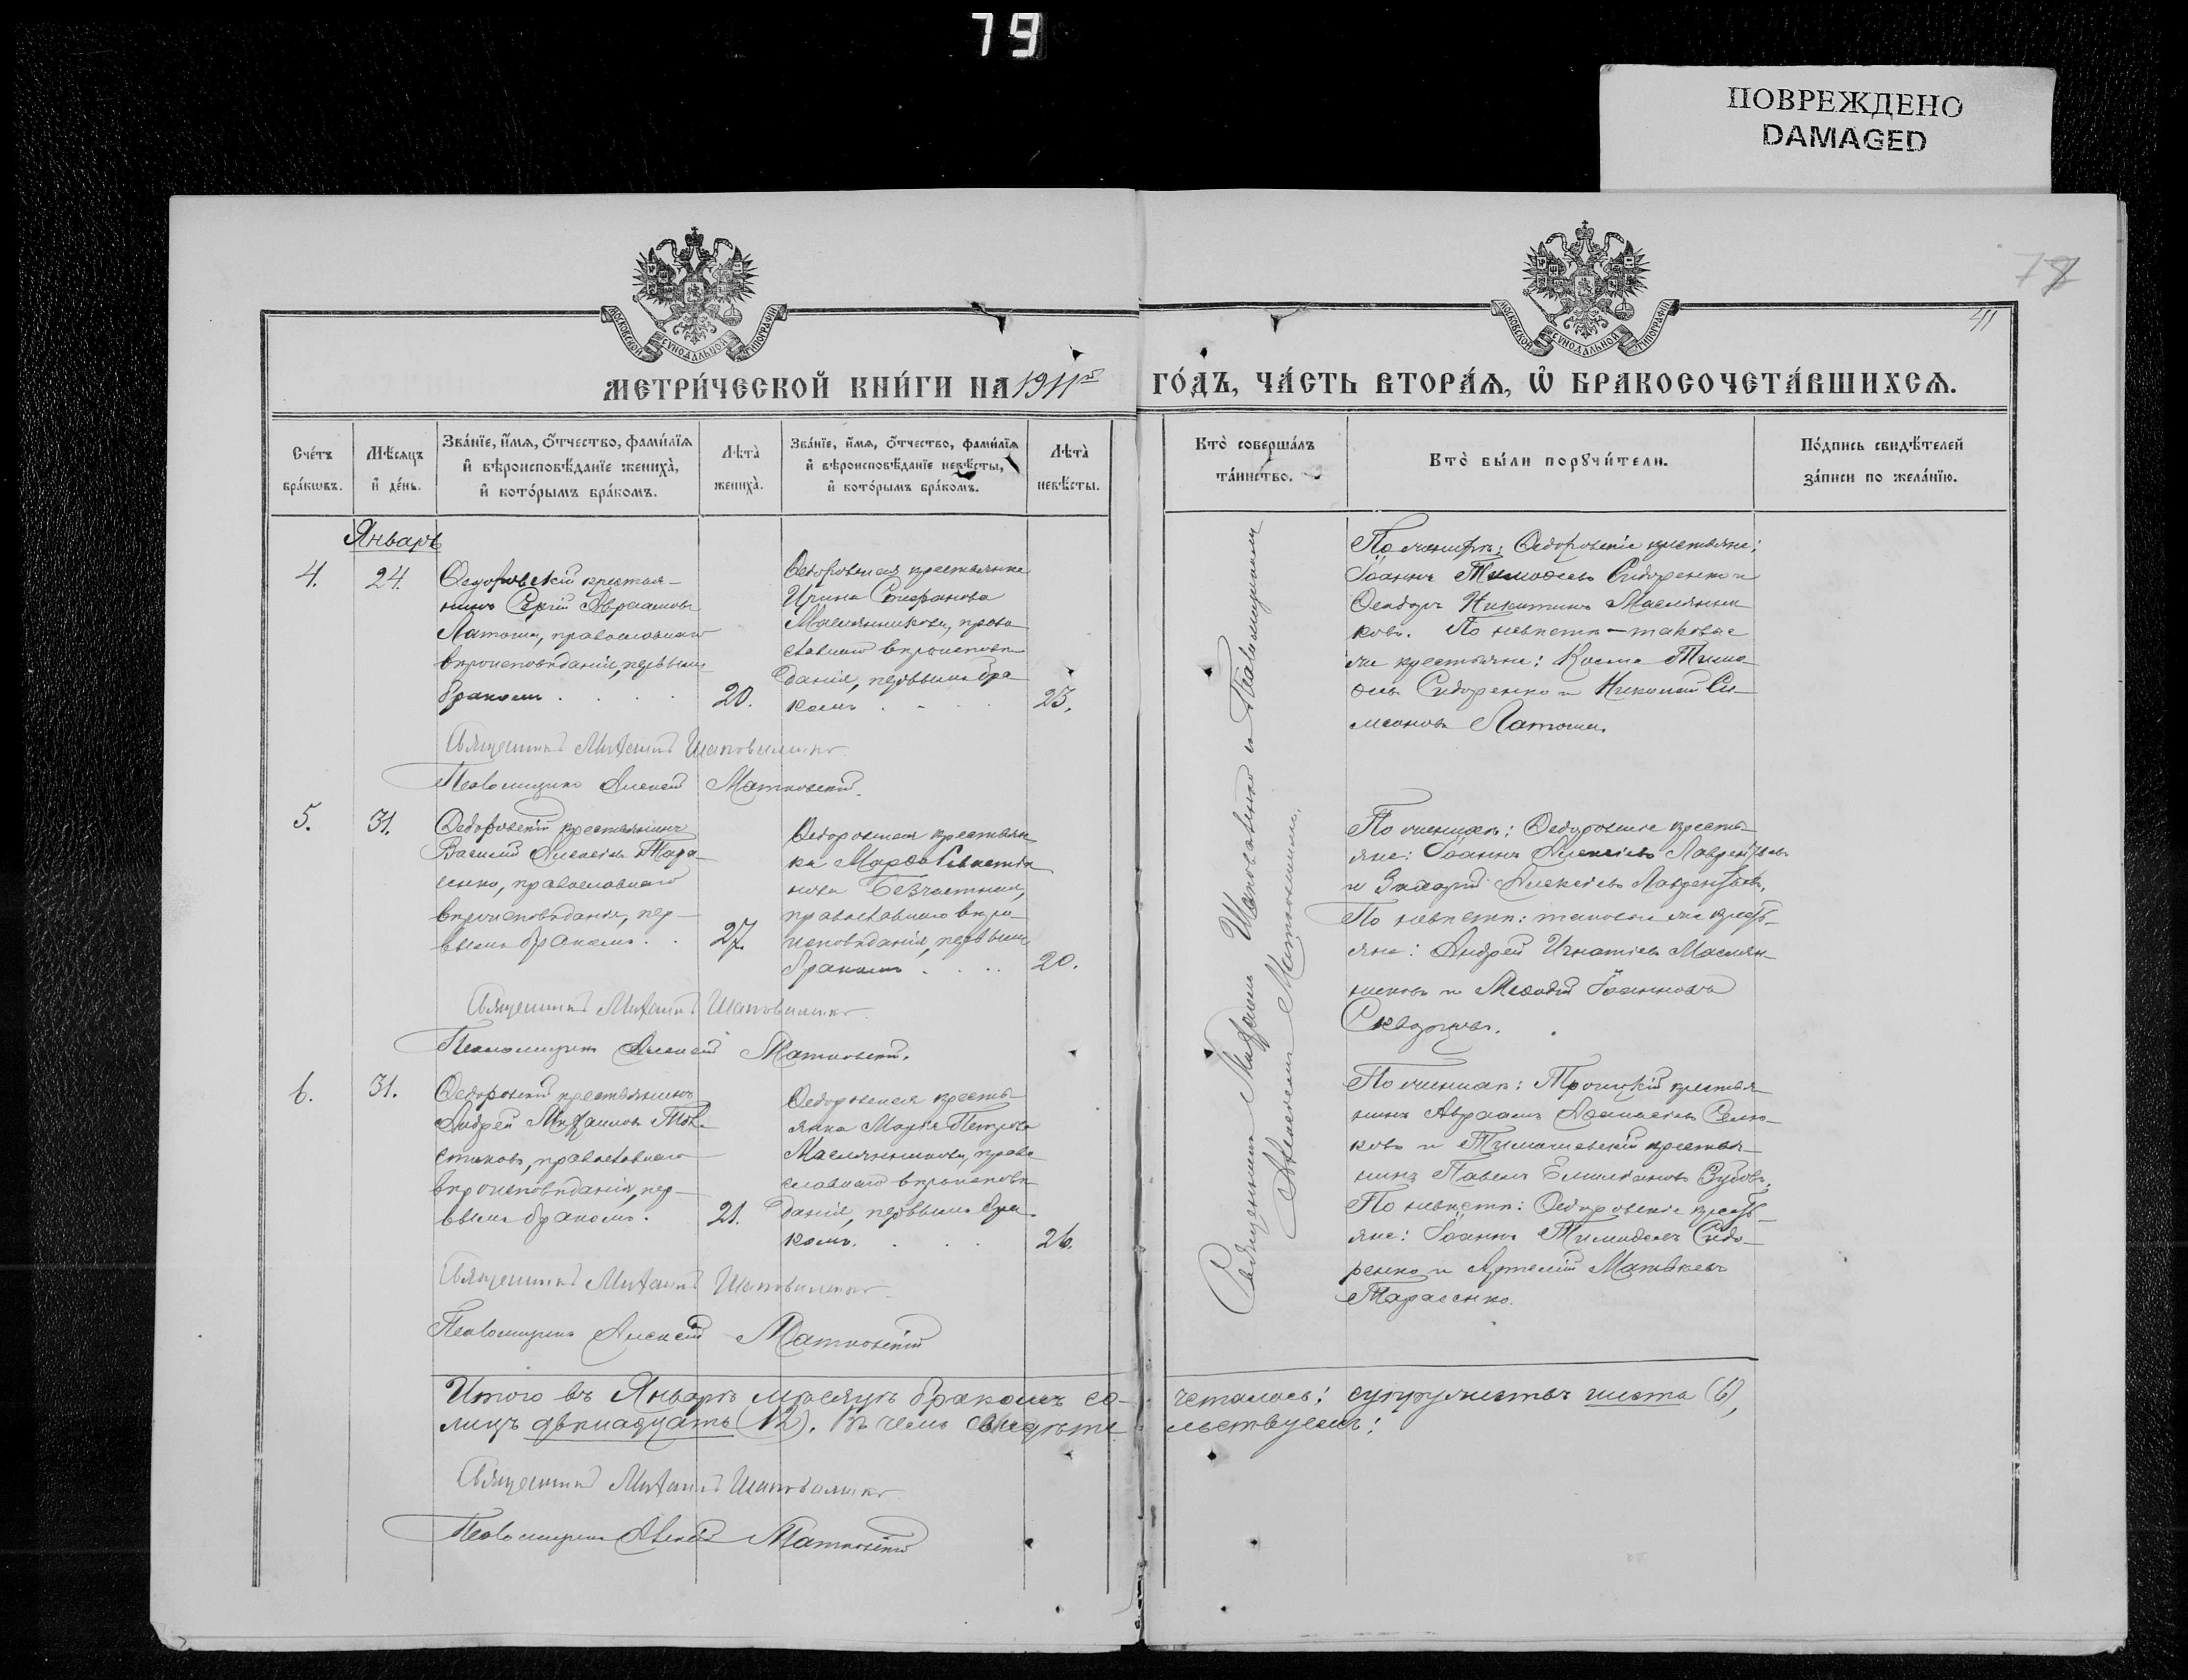 79
ПОВРЕЖДЕНО
DAMAGED
78
41
МОСКОВСКОЙ СѴНОДАЛЬНОЙ ТИПОГРАФІИ
МОСКОВСКОЙ СѴНОДАЛЬНОЙ ТИПОГРАФІИ
МЕТРИ́ЧЕСКОЙ КНИ́ГИ НА 1911й
ГО́ДЪ, ЧА́СТЬ ВТОРА́Ѧ, Ѡ҆ БРАКОСОЧЕТА́ВШИХСѦ.
Сче́тъ бра́кѡвъ.
Мѣ́сѧцъ и҆ де́нь.
Зва́нїе, и҆́мѧ, ѻ҆́тчество, фами́лїѧ
и҆ вѣроисповѣ́данїе жениха̀,
и҆ кото́рымъ бра́комъ.
Лѣта̀ жениха̀.
Зва́нїе, и҆́мѧ, ѻ҆́тчество, фами́лїѧ
и҆ вѣроисповѣ́данїе невѣ́сты,
и҆ кото́рымъ бра́комъ.
Лѣта̀ невѣ́сты.
Кто̀ соверша́лъ
та́инство.
Кто̀ бы́ли порꙋчи́тели.
По́дпись свидѣ́телей
за́писи по жела́нїю.
Январь
4.
24.
Ѳедоровскій крестья-
нинъ Сергій Авраамовъ
Латоша, православнаго
вѣроисповѣданія, первымъ
бракомъ . . .
20.
Ѳедоровская крестьянка
Ирина Стефанова
Маслянникова, право-
славнаго вѣроисповѣ-
данія, первымъ бра-
комъ . . .
23.
По женихѣ: Ѳедоровскіе крестьяне:
Іоаннъ Тимоѳеевъ Сидоренко и
Ѳеодоръ Никитинъ Маслянни-
ковъ. По невѣстѣ – таковые
же крестьяне: Косма Тимо-
ѳеевъ Сидоренко и Николай Си-
меоновъ Латоша.
Священникъ Михаилъ Шаповаленко
Псаломщикъ Алексій Матковскій.
5.
31.
Ѳедоровскій крестьянинъ
Василій Алексіевъ Тара-
сенко, православнаго
вѣроисповѣданія, пер-
вымъ бракомъ . .
27.
Ѳедоровская крестьян-
ка Марѳа Севастія-
нова Безчастная,
православнаго вѣро-
исповѣданія, первымъ
бракомъ . . . .
20.
По женихѣ: Ѳедоровскіе кресть-
яне: Іоаннъ Алексіевъ Лаврентьевъ
и Захарій Алексіевъ Лаврентьевъ.
По невѣстѣ: таковые же кресть-
яне: Андрей Игнатіевъ Маслян-
никовъ и Меѳодій Іоанновъ
Священникъ Михаилъ Шаповаленко
Псаломщикъ Алексій Матковскій.
6.
31.
Ѳедоровскій крестьянинъ
Андрей Михаиловъ Тол-
стиковъ, православнаго
вѣроисповѣданія, пер-
вымъ бракомъ.
21.
Ѳедоровская кресть-
янка Марія Петрова
Маслянникова, право-
славнаго вѣроисповѣ-
данія, первымъ бра-
комъ. . . .
26.
По женихѣ: Троицкій крестья-
нинъ Авраамъ Аѳанасіевъ
и Тимашевскій крестья-
нинъ Павелъ Емиліановъ Зубовъ.
По невѣстѣ: Ѳедоровскіе кресть-
яне: Іоаннъ Тимоѳеевъ Сидо-
ренко и Артемій Матвѣевъ
Тарасенко.
Священникъ Михаилъ Шаповаленко
Псаломщикъ Алексій Матковскій
Священникъ Михаилъ Шаповаленко и Псаломщикъ
Алексій Матковскій.
Итого въ Январѣ мѣсяцѣ бракомъ со- четалось: супружествъ шесть (6),
лицъ двѣнадцать (12). Въ чемъ свидѣте- льствуемъ:
Священникъ Михаилъ Шаповаленко
Псаломщикъ Алексій Матковскій